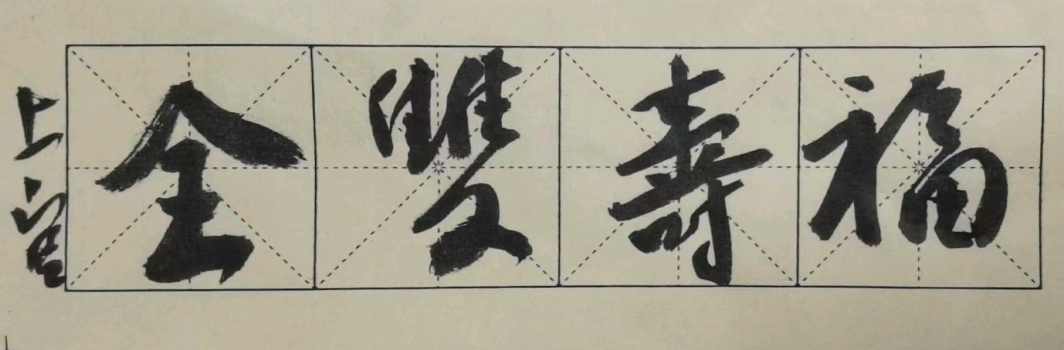 福壽雙全
上官